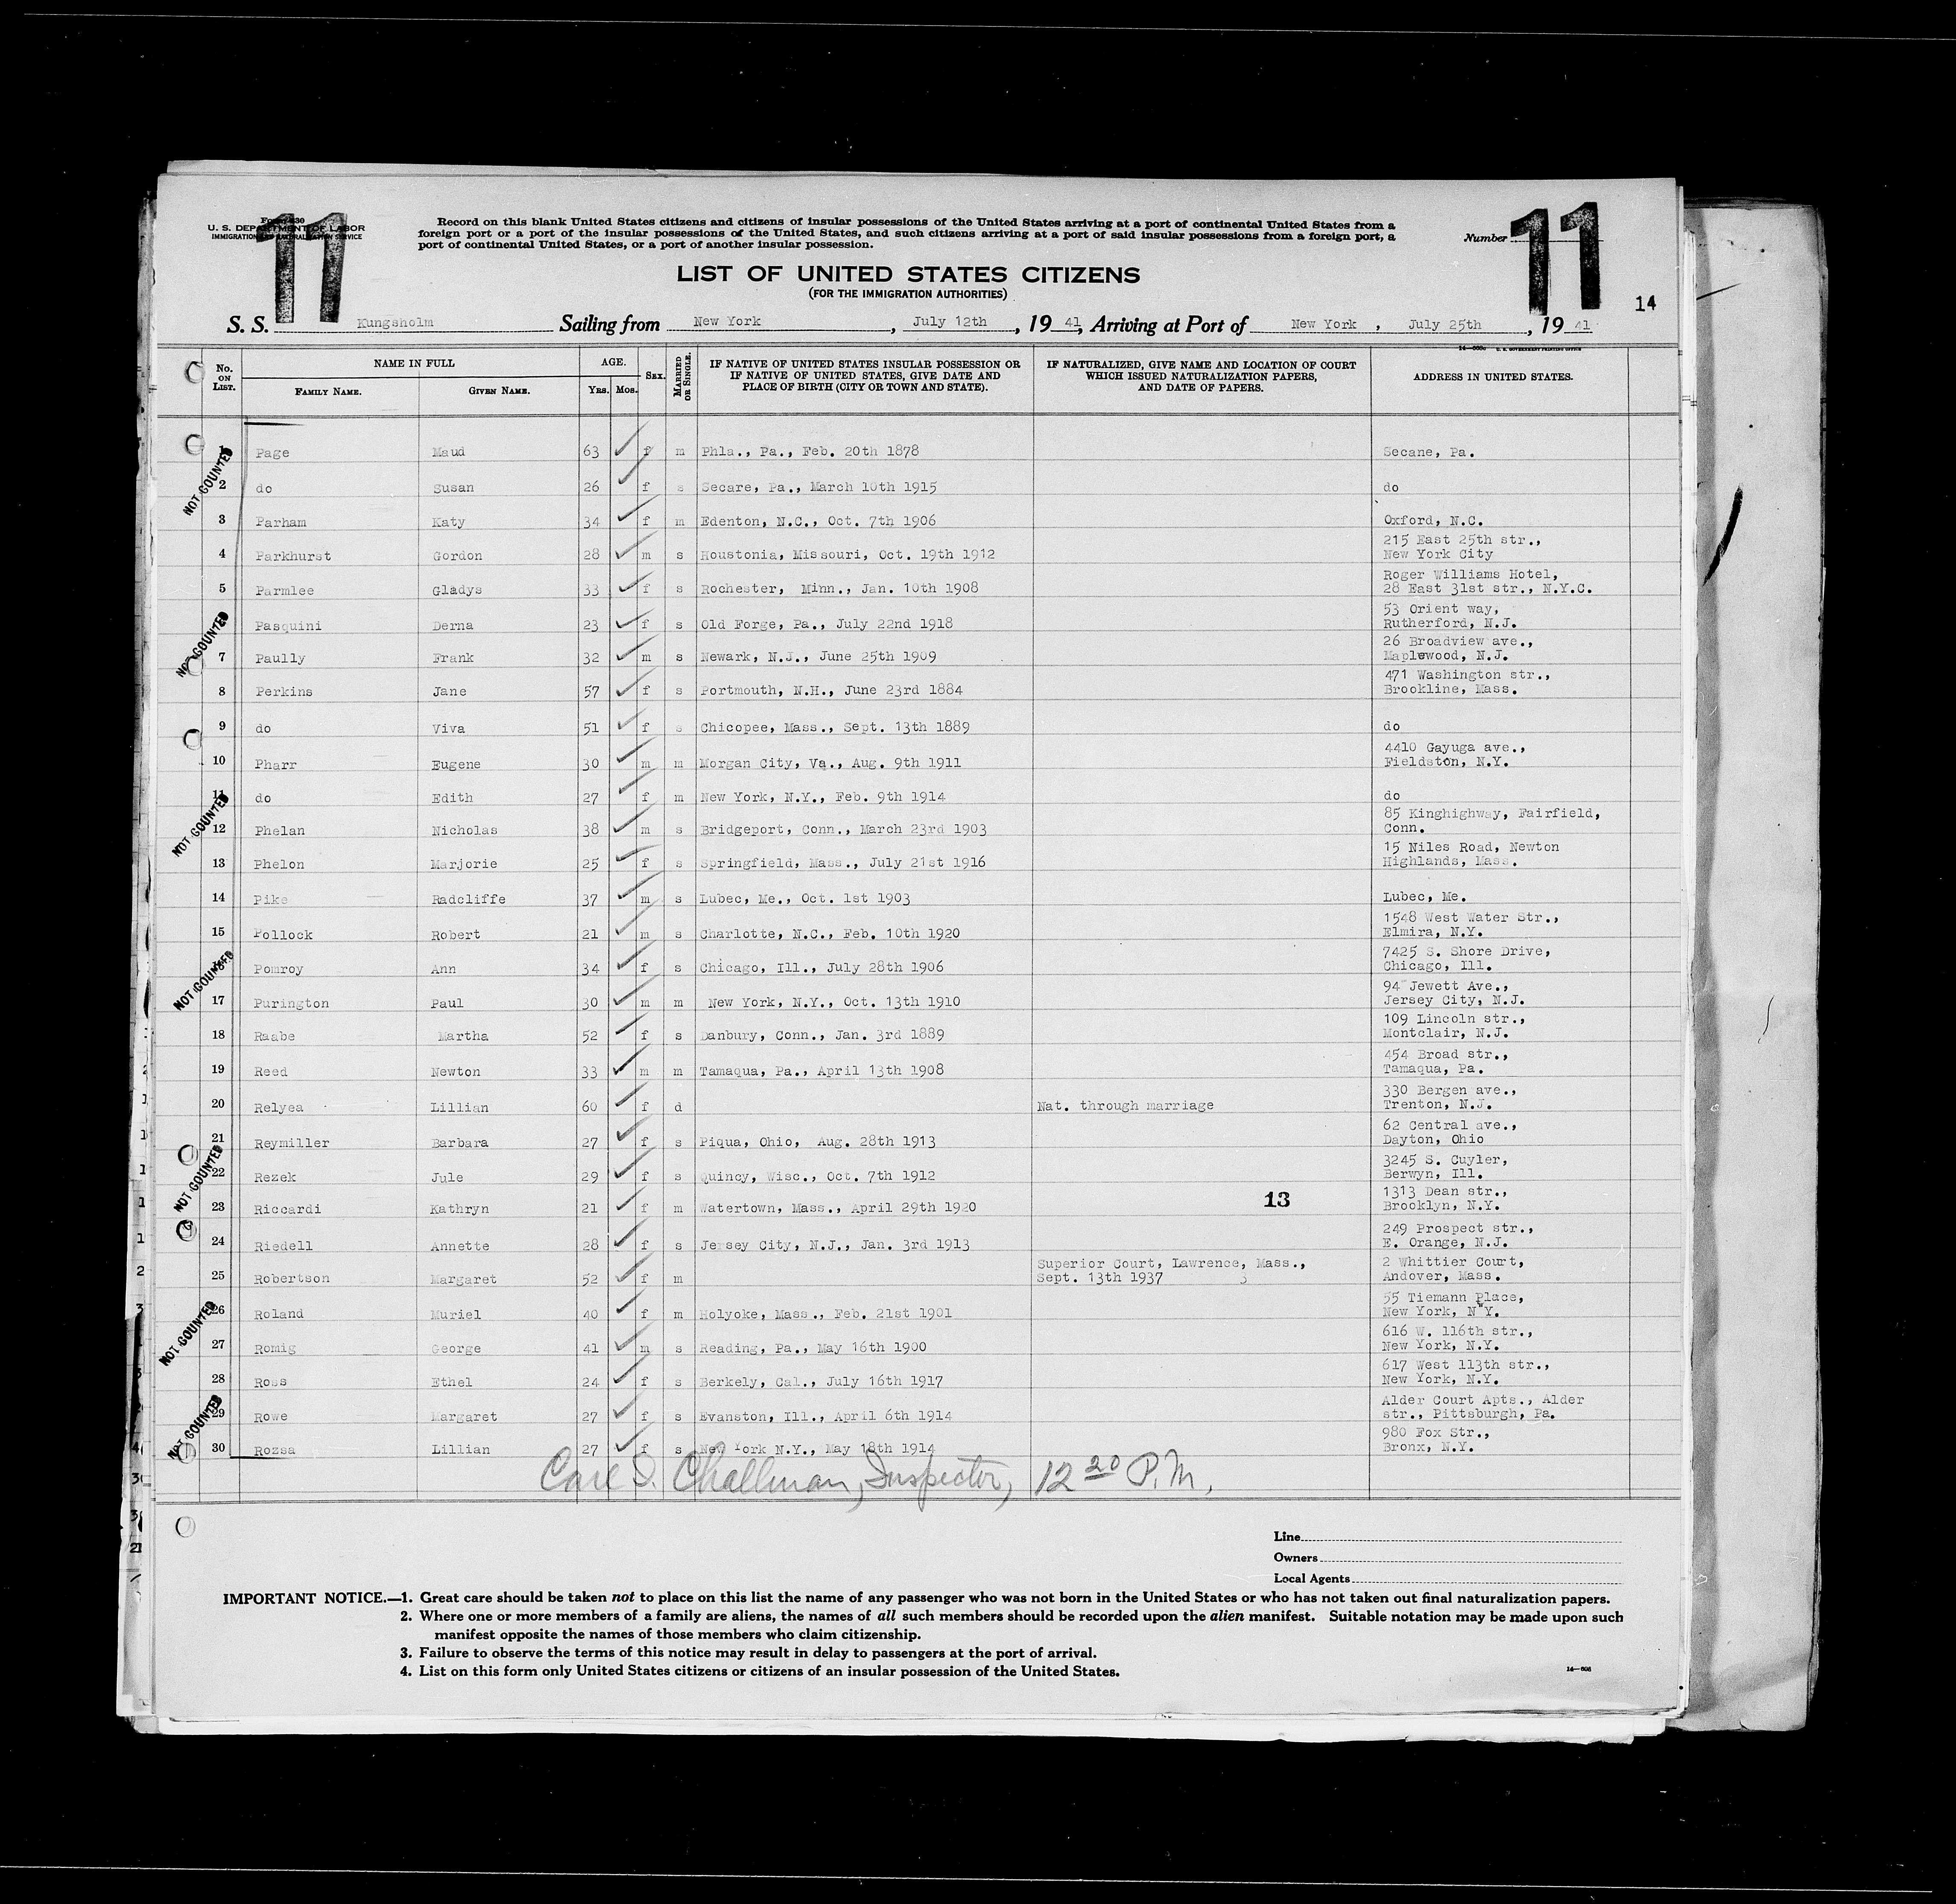 Form 630
U. S. DEPARTMENT OF LABOR
IMMIGRATION AND NATURALIZATION SERVICE
11
Record on this blank United States citizens and citizens of insular possessions of the United States arriving at a port of continental United States from a
foreign port or a port of the insular possessions of the United States, and such citizens arriving at a port of said insular possessions from a foreign port, a
port of continental United States, or a port of another insular possession.
Number 11
LIST OF UNITED STATES CITIZENS
(FOR THE IMMIGRATION AUTHORITIES)
14
S. S. Kungsholm Sailing from New York, July 12th, 19 41, Arriving at Port of New York, July 25th, 19 41
No. ON LIST. NAME IN FULL FAMILY NAME. GIVEN NAME. AGE. YRS. MOS. SEX. MARRIED OR SINGLE. IF NATIVE OF UNITED STATES INSULAR POSSESSION OR IF NATIVE OF UNITED STATES, GIVE DATE AND PLACE OF BIRTH (CITY OR TOWN AND STATE). IF NATURALIZED, GIVE NAME AND LOCATION OF COURT WHICH ISSUED NATURALIZATION PAPERS, AND DATE OF PAPERS. ADDRESS IN UNITED STATES.
1 Page Maud 63 f m Phla., Pa., Feb. 20th 1878 Secane, Pa.
NOT COUNTED
2 do Susan 26 f s Secare, Pa., March 10th 1915 do
3 Parham Katy 34 f m Edenton, N.C., Oct. 7th 1906 Oxford, N.C.
4 Parkhurst Gordon 28 m s Houstonia, Missouri, Oct. 19th 1912 215 East 25th str., New York City
5 Parmlee Gladys 33 f s Rochester, Minn., Jan. 10th 1908 Roger Williams Hotel, 28 East 31st str., N.Y.C.
Pasquini Derna 23 f s Old Forge, Pa., July 22nd 1918 53 Orient way, Rutherford, N.J.
NOT COUNTED
7 Paully Frank 32 m s Newark, N.J., June 25th 1909 26 Broadview ave., Maplewood, N.J.
8 Perkins Jane 57 f s Portmouth, N.H., June 23rd 1884 471 Washington str., Brookline, Mass.
9 do Viva 51 f s Chicopee, Mass., Sept. 13th 1889 do
10 Pharr Eugene 30 m m Morgan City, Va., Aug. 9th 1911 4410 Gayuga ave., Fieldston, N.Y.
11 do Edith 27 f m New York, N.Y., Feb. 9th 1914 do
NOT COUNTED
12 Phelan Nicholas 38 m s Bridgeport, Conn., March 23rd 1903 85 Kinghighway, Fairfield, Conn.
13 Phelon Marjorie 25 f s Springfield, Mass., July 21st 1916 15 Niles Road, Newton Highlands, Mass.
14 Pike Radcliffe 37 m s Lubec, Me., Oct. 1st 1903 Lubec, Me.
15 Pollock Robert 21 m s Charlotte, N.C., Feb. 10th 1920 1548 West Water Str., Elmira, N.Y.
Pomroy Ann 34 f s Chicago, Ill., July 28th 1906 7425 S. Shore Drive, Chicago, Ill.
NOT COUNTED
17 Purington Paul 30 m m New York, N.Y., Oct. 13th 1910 94 Jewett Ave., Jersey City, N.J.
18 Raabe Martha 52 f s Danbury, Conn., Jan. 3rd 1889 109 Lincoln str., Montclair, N.J.
19 Reed Newton 33 m m Tamaqua, Pa., April 13th 1908 454 Broad str., Tamaqua, Pa.
20 Relyea Lillian 60 f d Nat. through marriage 330 Bergen ave., Trenton, N.J.
21 Reymiller Barbara 27 f s Piqua, Ohio, Aug. 28th 1913 62 Central ave., Dayton, Ohio
NOT COUNTED
22 Rezek Jule 29 f s Quincy, Wisc., Oct. 7th 1912 3245 S. Cuyler, Berwyn, Ill.
23 Riccardi Kathryn 21 f m Watertown, Mass., April 29th 1920 13 1313 Dean str., Brooklyn, N.Y.
24 Riedell Annette 28 f s Jersey City, N.J., Jan. 3rd 1913 249 Prospect str., E. Orange, N.J.
25 Robertson Margaret 52 f m Superior Court, Lawrence, Mass., Sept. 13th 1937 3 2 Whittier Court, Andover, Mass.
26 Roland Muriel 40 f m Holyoke, Mass., Feb. 21st 1901 55 Tiemann Place, New York, N.Y.
NOT COUNTED
27 Romig George 41 m s Reading, Pa., May 16th 1900 616 W. 116th str., New York, N.Y.
28 Ross Ethel 24 f s Berkely, Cal., July 16th 1917 617 West 113th str., New York, N.Y.
29 Rowe Margaret 27 f s Evanston, Ill., April 6th 1914 Alder Court Apts., Alder str., Pittsburgh, Pa.
NOT COUNTED
30 Rozsa Lillian 27 f s New York N.Y., May 18th 1914 980 Fox Str., Bronx, N.Y.
Carl S. Challman, Inspector, 12 20 P.M.
Line
Owners
Local Agents
IMPORTANT NOTICE.—1. Great care should be taken not to place on this list the name of any passenger who was not born in the United States or who has not taken out final naturalization papers.
2. Where one or more members of a family are aliens, the names of all such members should be recorded upon the alien manifest. Suitable notation may be made upon such
manifest opposite the names of those members who claim citizenship.
3. Failure to observe the terms of this notice may result in delay to passengers at the port of arrival.
4. List on this form only United States citizens or citizens of an insular possession of the United States.